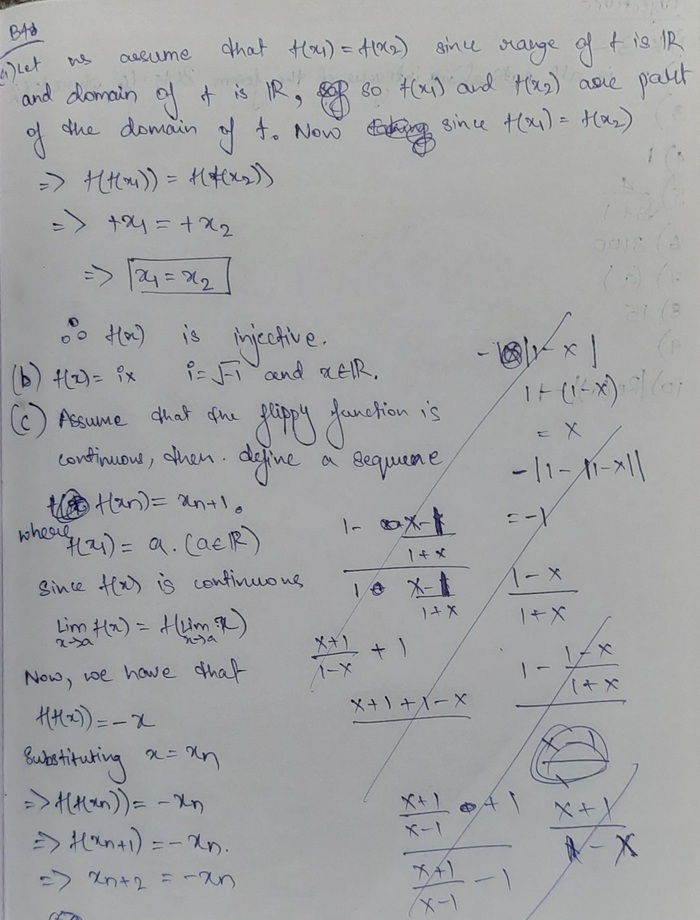 B4)
(a) Let us assume that f(x₁) = f(x₂) since range of f is ℝ
and domain of f is ℝ, so f(x₁) and f(x₂) are part
of the domain of f. Now since f(x₁) = f(x₂)
=> f(f(x₁)) = f(f(x₂))
=> +x₁ = +x₂
=> x₁ = x₂
∴ f(x) is injective.
(b) f(x) = ix i = √-1 and x∈ℝ.
(c) Assume that the flippy function is
continuous, then define a sequence
f(xn) = xn+1.
where f(x₁) = a. (a∈ℝ)
Since f(x) is continuous
Lim x→a f(x) = f(Lim x→a x)
Now, we have that
f(f(x)) = -x
Substituting x = xn
=> f(f(xn)) = -xn
=> f(xn+1) = -xn.
=> xn+2 = -xn
|1 - x|
1 + (1-x)
= x
-|1 - |1-x||
= -1
1 - x-1/1+x
1 x-1/1+x
1-x/1+x
x+1/1-x + 1
1 - 1-x/1+x
x+1+1-x
x+1/x-1 + 1
x+1/x-1 - 1
x+1/1-x